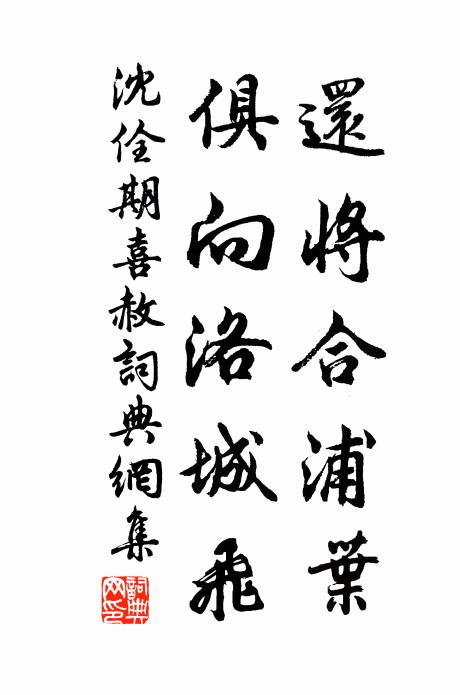 還將合浦葉
俱向洛城飛
沈佺期喜赦詞典網集
詞典網印